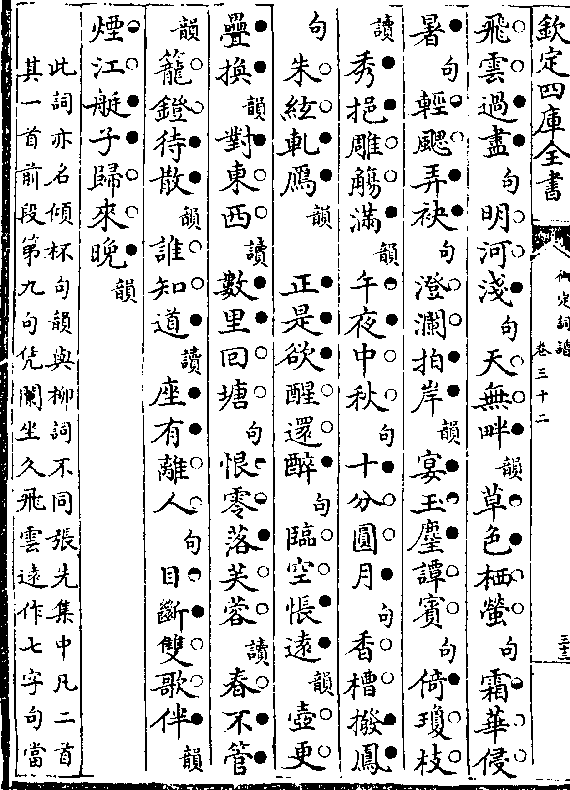 欽定四庫全書
御定詞譜
卷三十二
三十三
飛雲過盡句明河淺句天無畔韻草色栖螢句霜華侵
暑句輕颸弄袂句澄瀾拍岸韻宴玉麈譚賓句倚瓊枝
讀秀挹雕觴滿韻午夜中秋句十分圓月句香槽撥鳳
句朱絃軋鴈韻 正是欲醒還醉句臨空悵遠韻壺更
疊換韻對東西讀數里回塘句恨零落芙蓉讀春不管
韻籠鐙待散韻誰知道讀座有離人句目斷雙歌伴韻
煙江艇子歸來晚韻
此詞亦名傾杯句韻與柳詞不同張先集中凡二首
其一首前段第九句凭闌坐久飛雲遠作七字句當